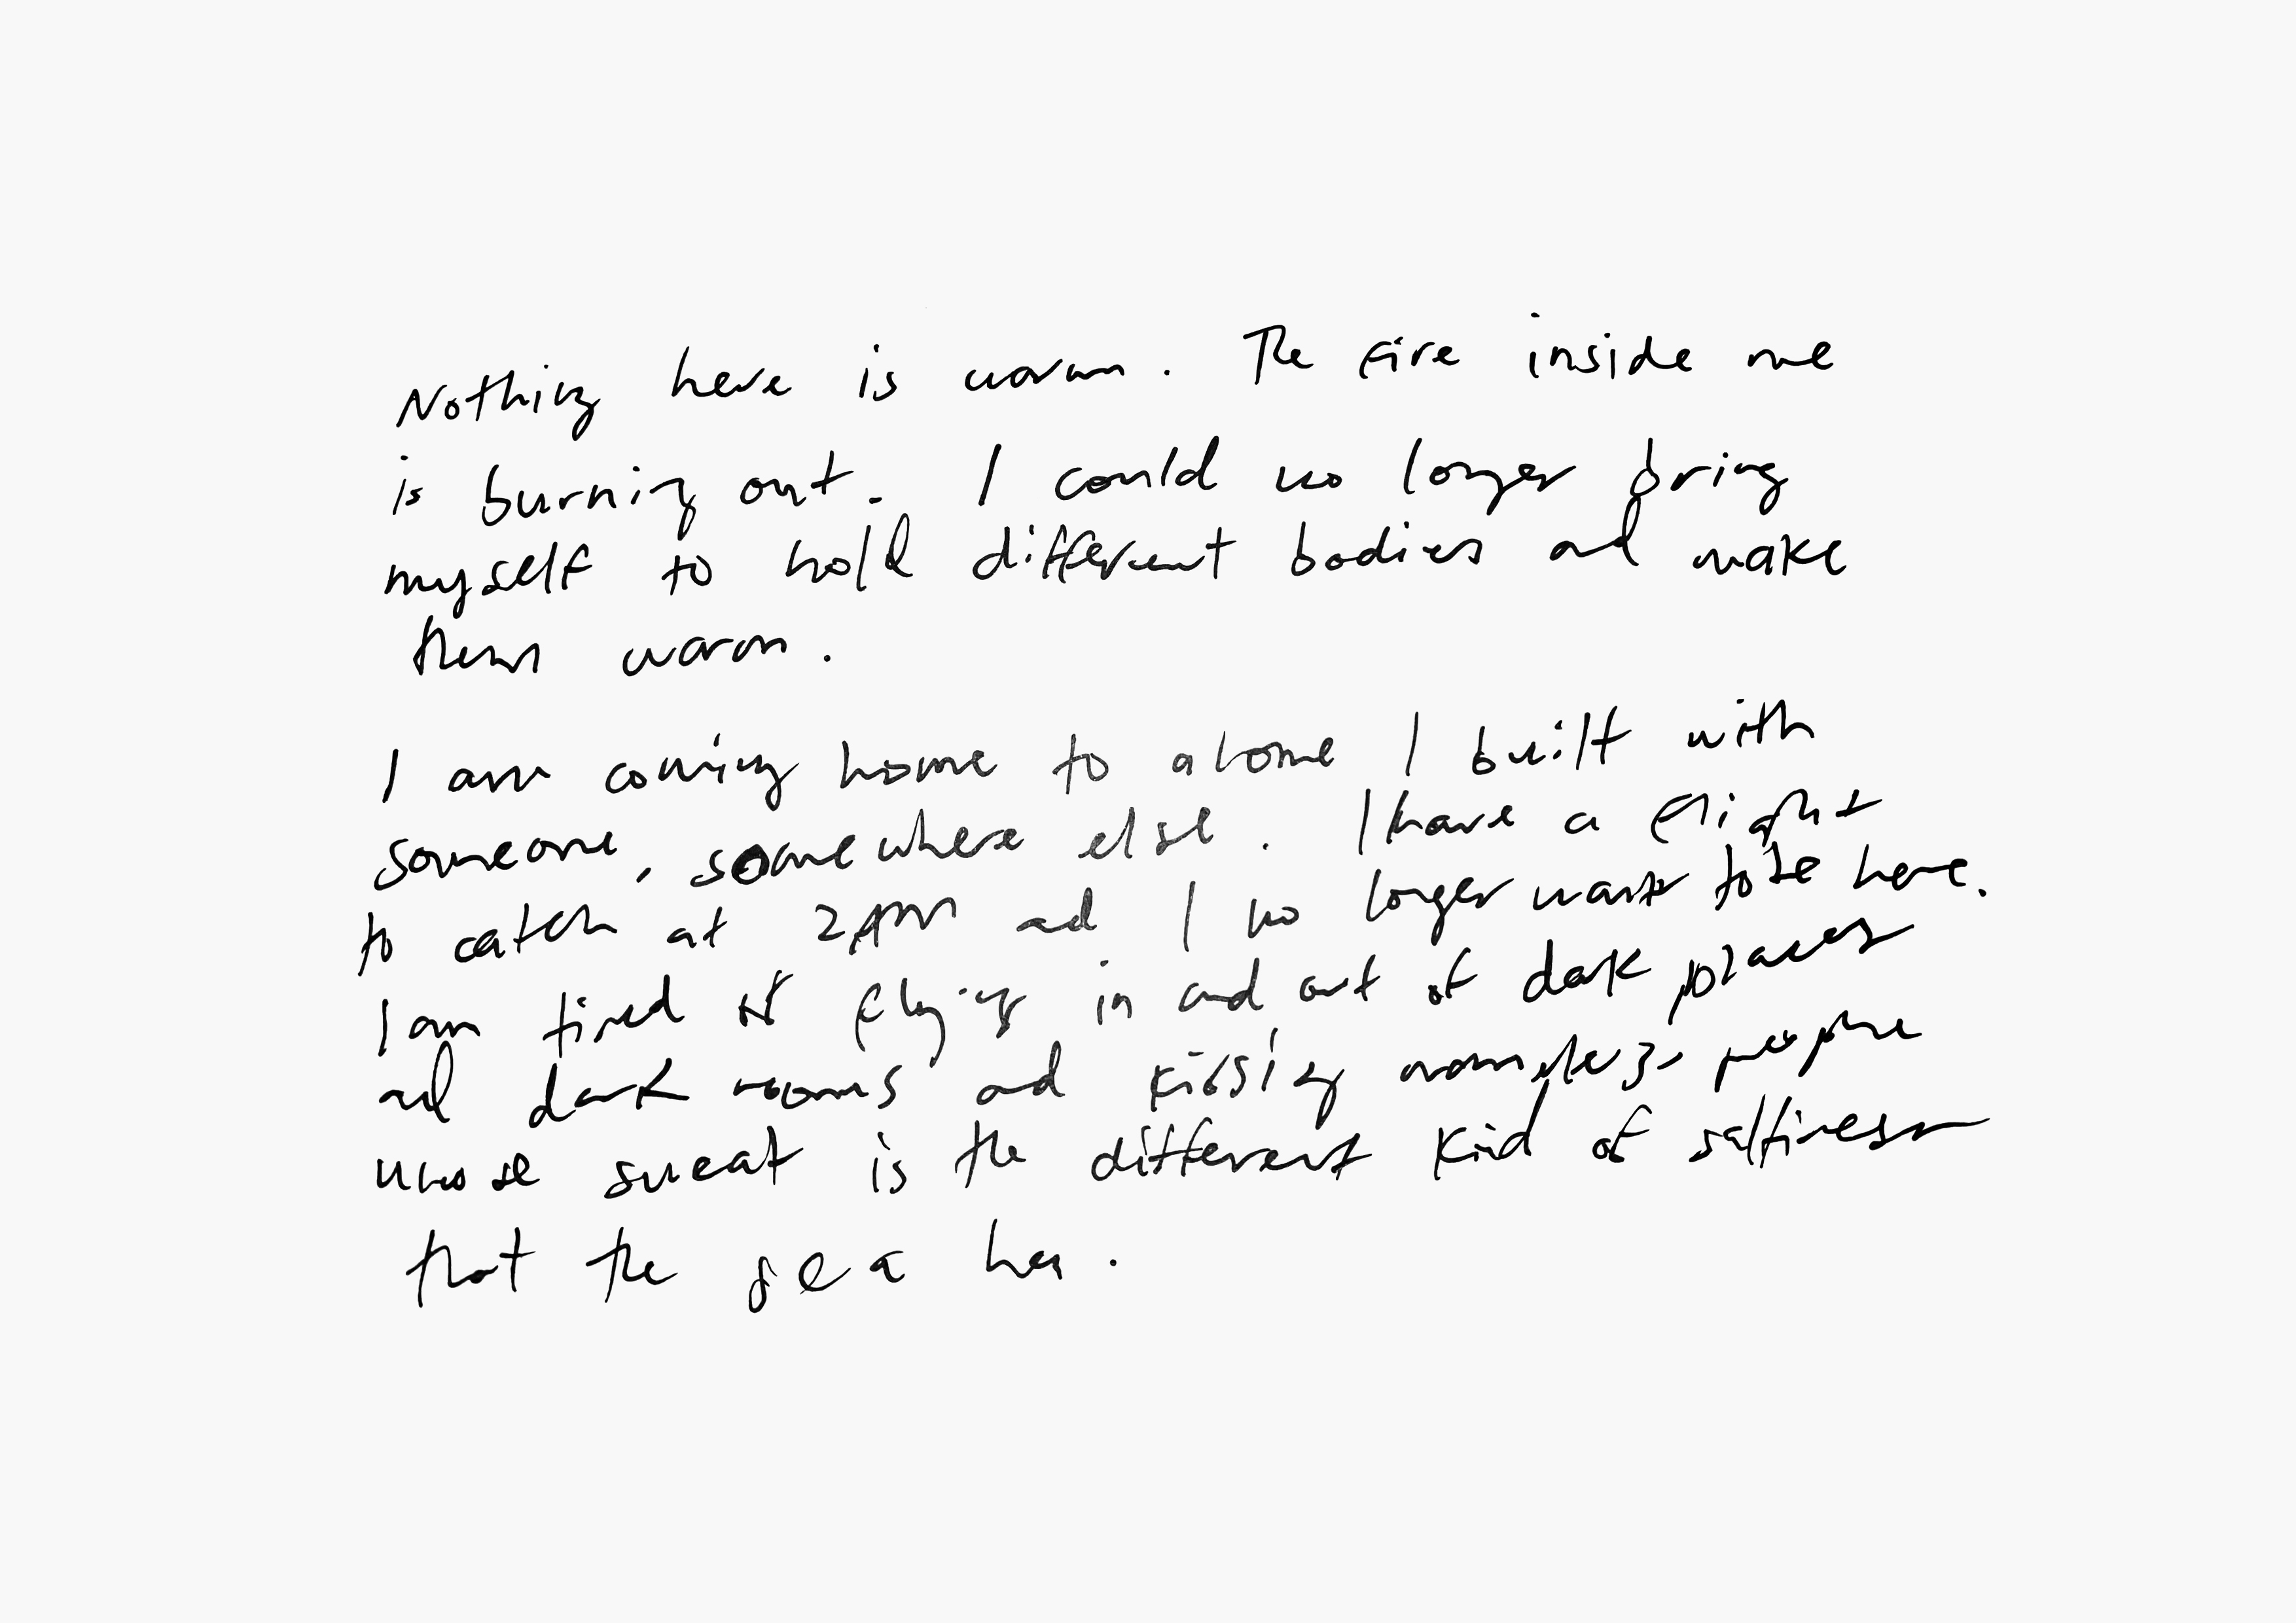 Nothing here is warm. The fire inside me
is burning out. I could no longer bring
myself to hold different bodies and make
them warm.
I am coming home to a home I built with
someone, somewhere else. I have a flight
to catch at 2pm and I no longer want to be here.
I am tired of flying in and out of dark places
and dark rooms and kissing nameless people
whose sweat is the different kind of saltiness
that the sea has.